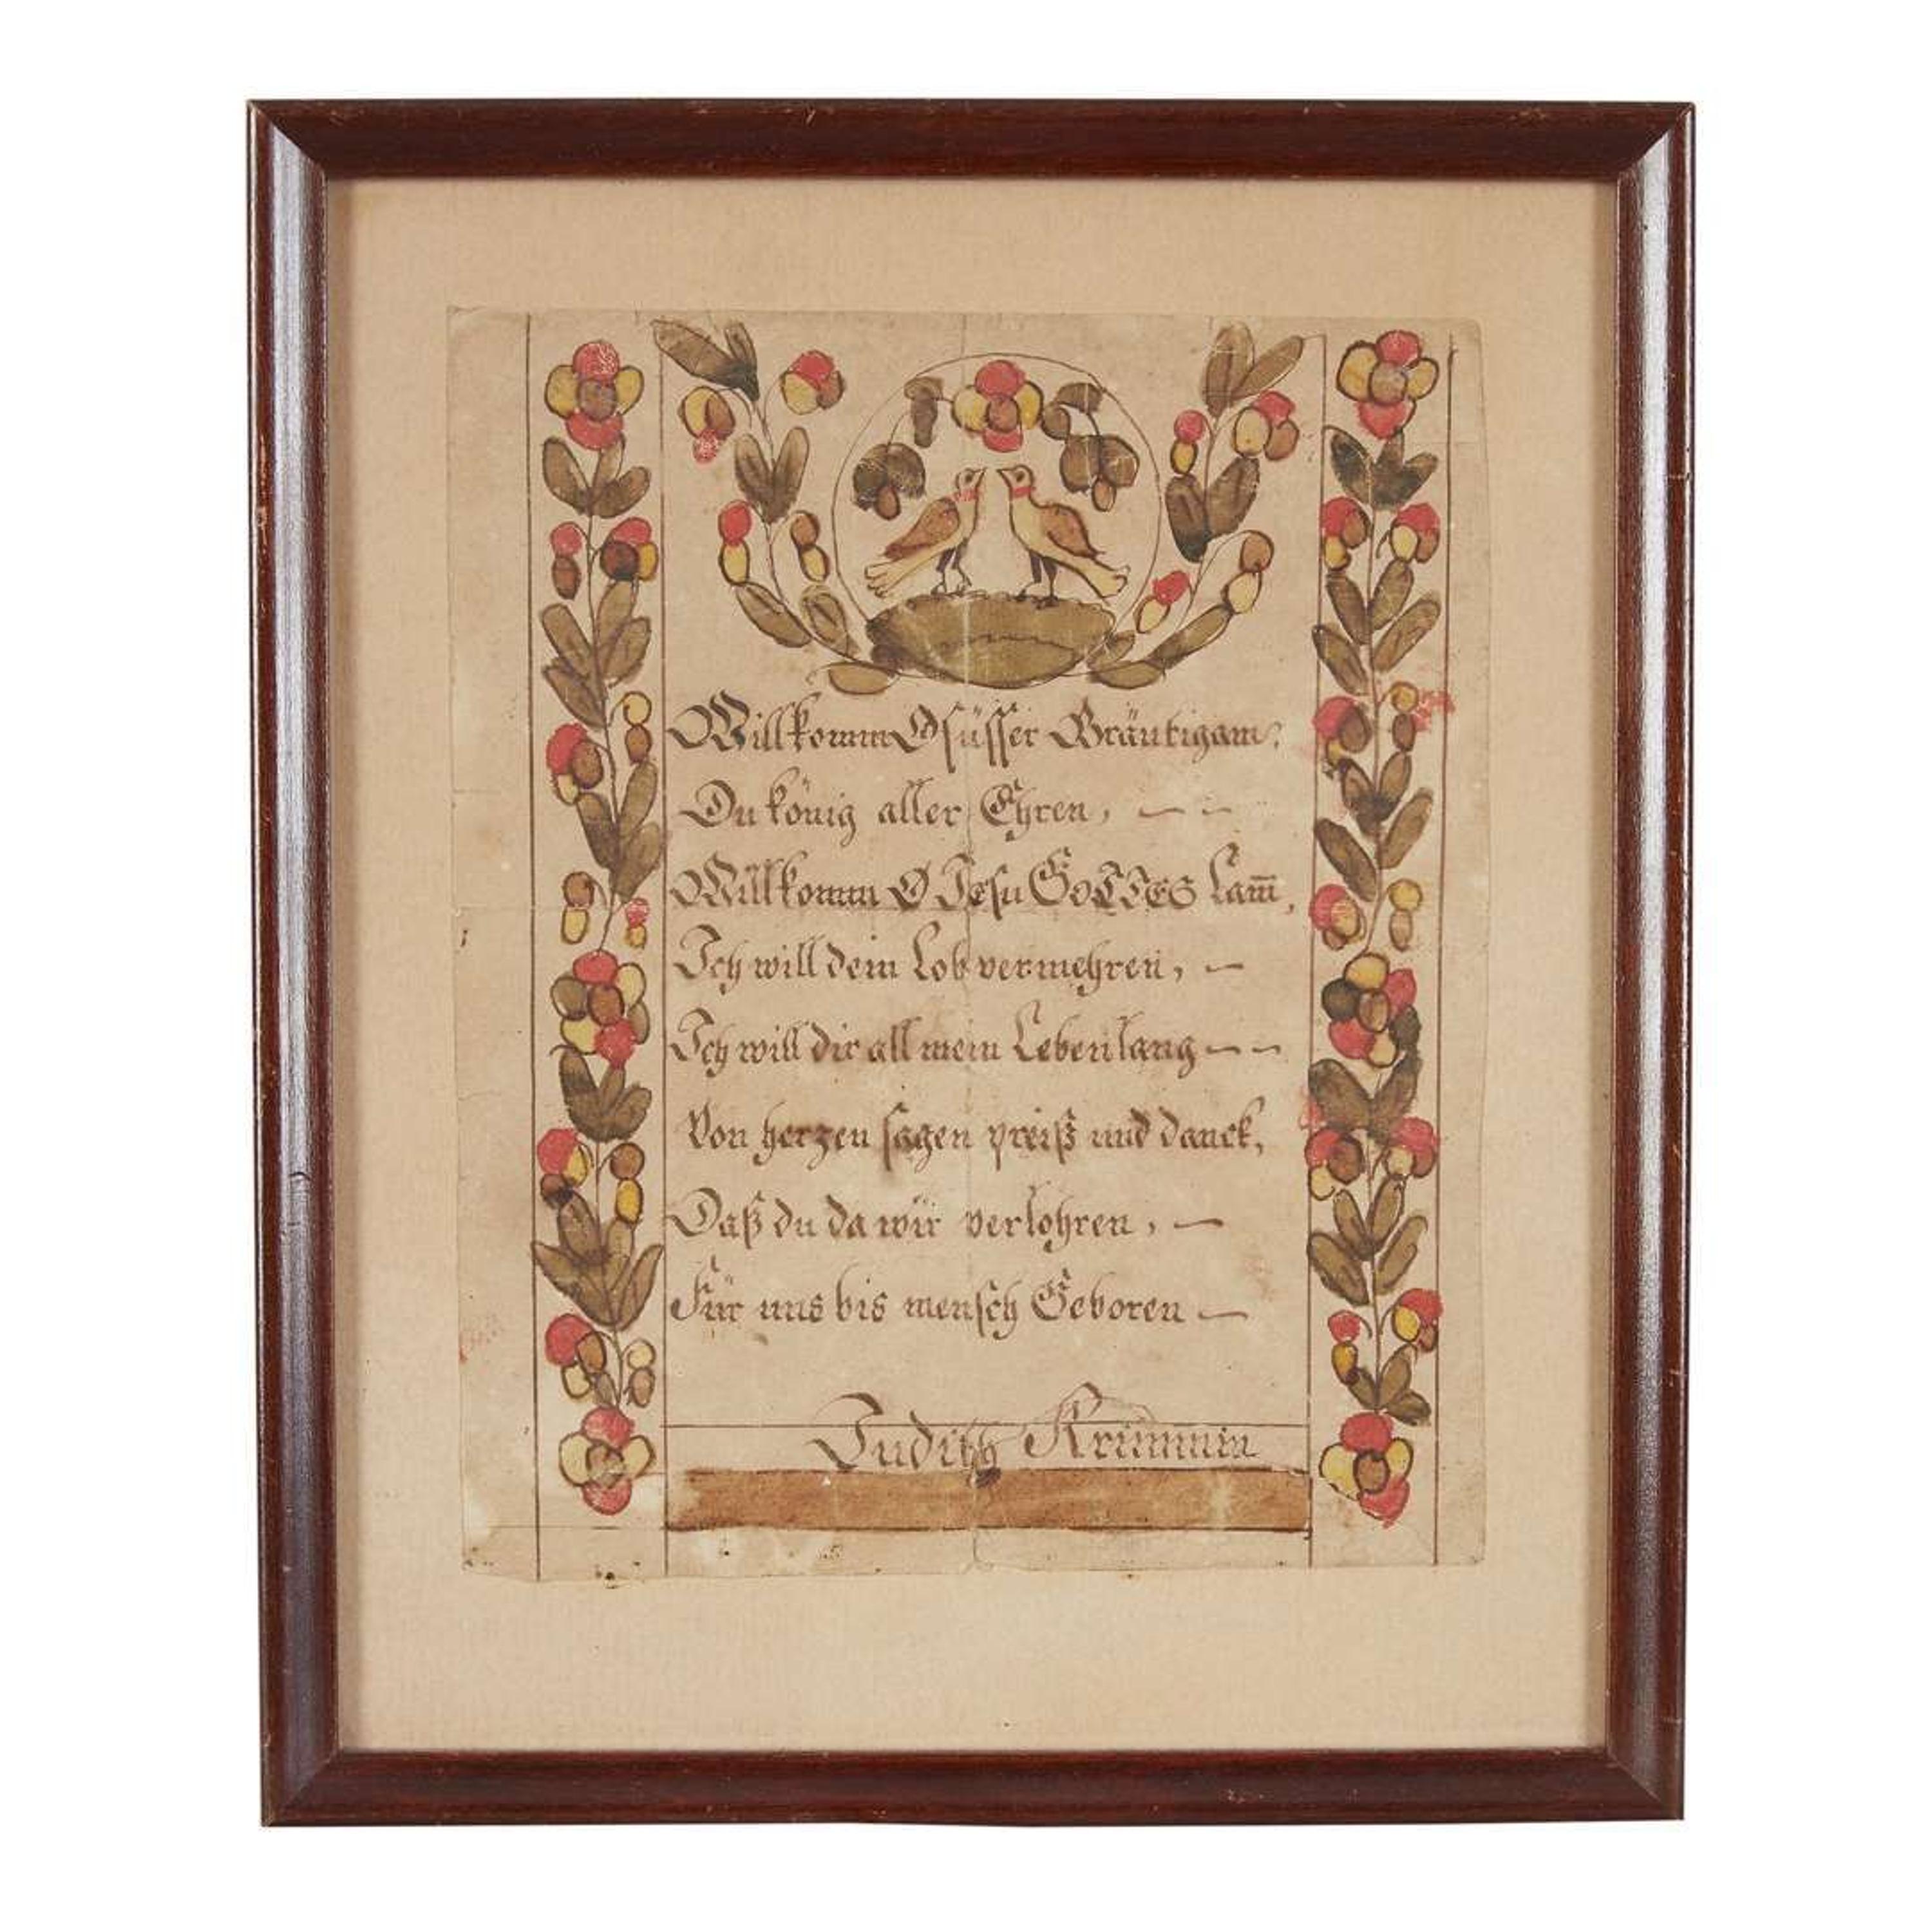 Willkomm O süsser Bräutigam,
Du könig aller Ehren,
Willkomm O Jesu GOTTES Lam̅,
Ich will dein Lob vermehren,
Ich will dir all mein Lebenlang
Von herzen sagen preiß und danck,
Daß du da wir verlohren,
Für uns bis mensch Geboren
Judith Krimmin